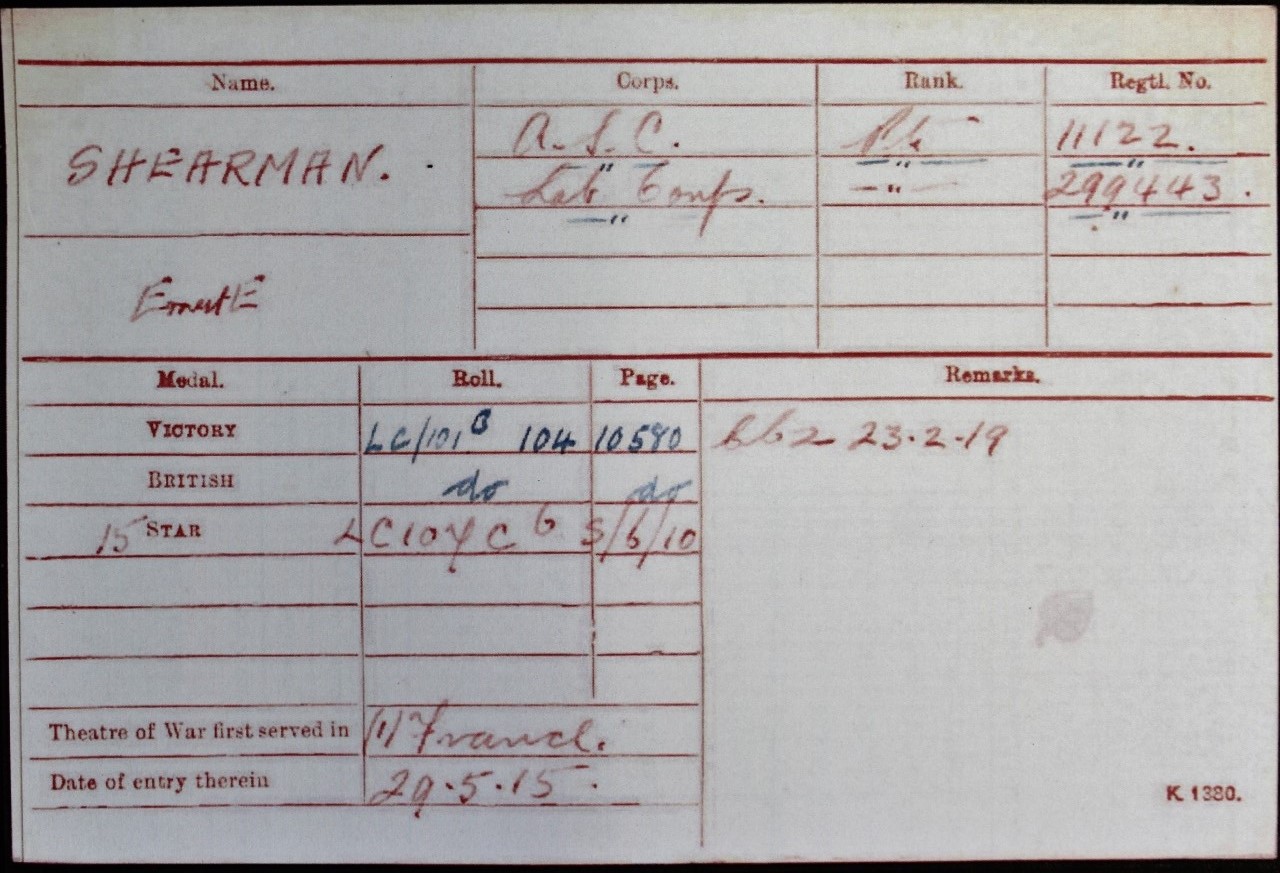 Name. Corps. Rank. Regtl. No.
SHEARMAN. A.S.C. Pte 11122.
" " "
Lab Corps. —"— 299443.
" "
Ernest E
Medal. Roll. Page. Remarks.
VICTORY LC/101 B 104 10580 23.2.19
BRITISH do do
15 STAR S/6/10
Theatre of War first served in (1) France.
Date of entry therein 29.5.15.
K. 1380.